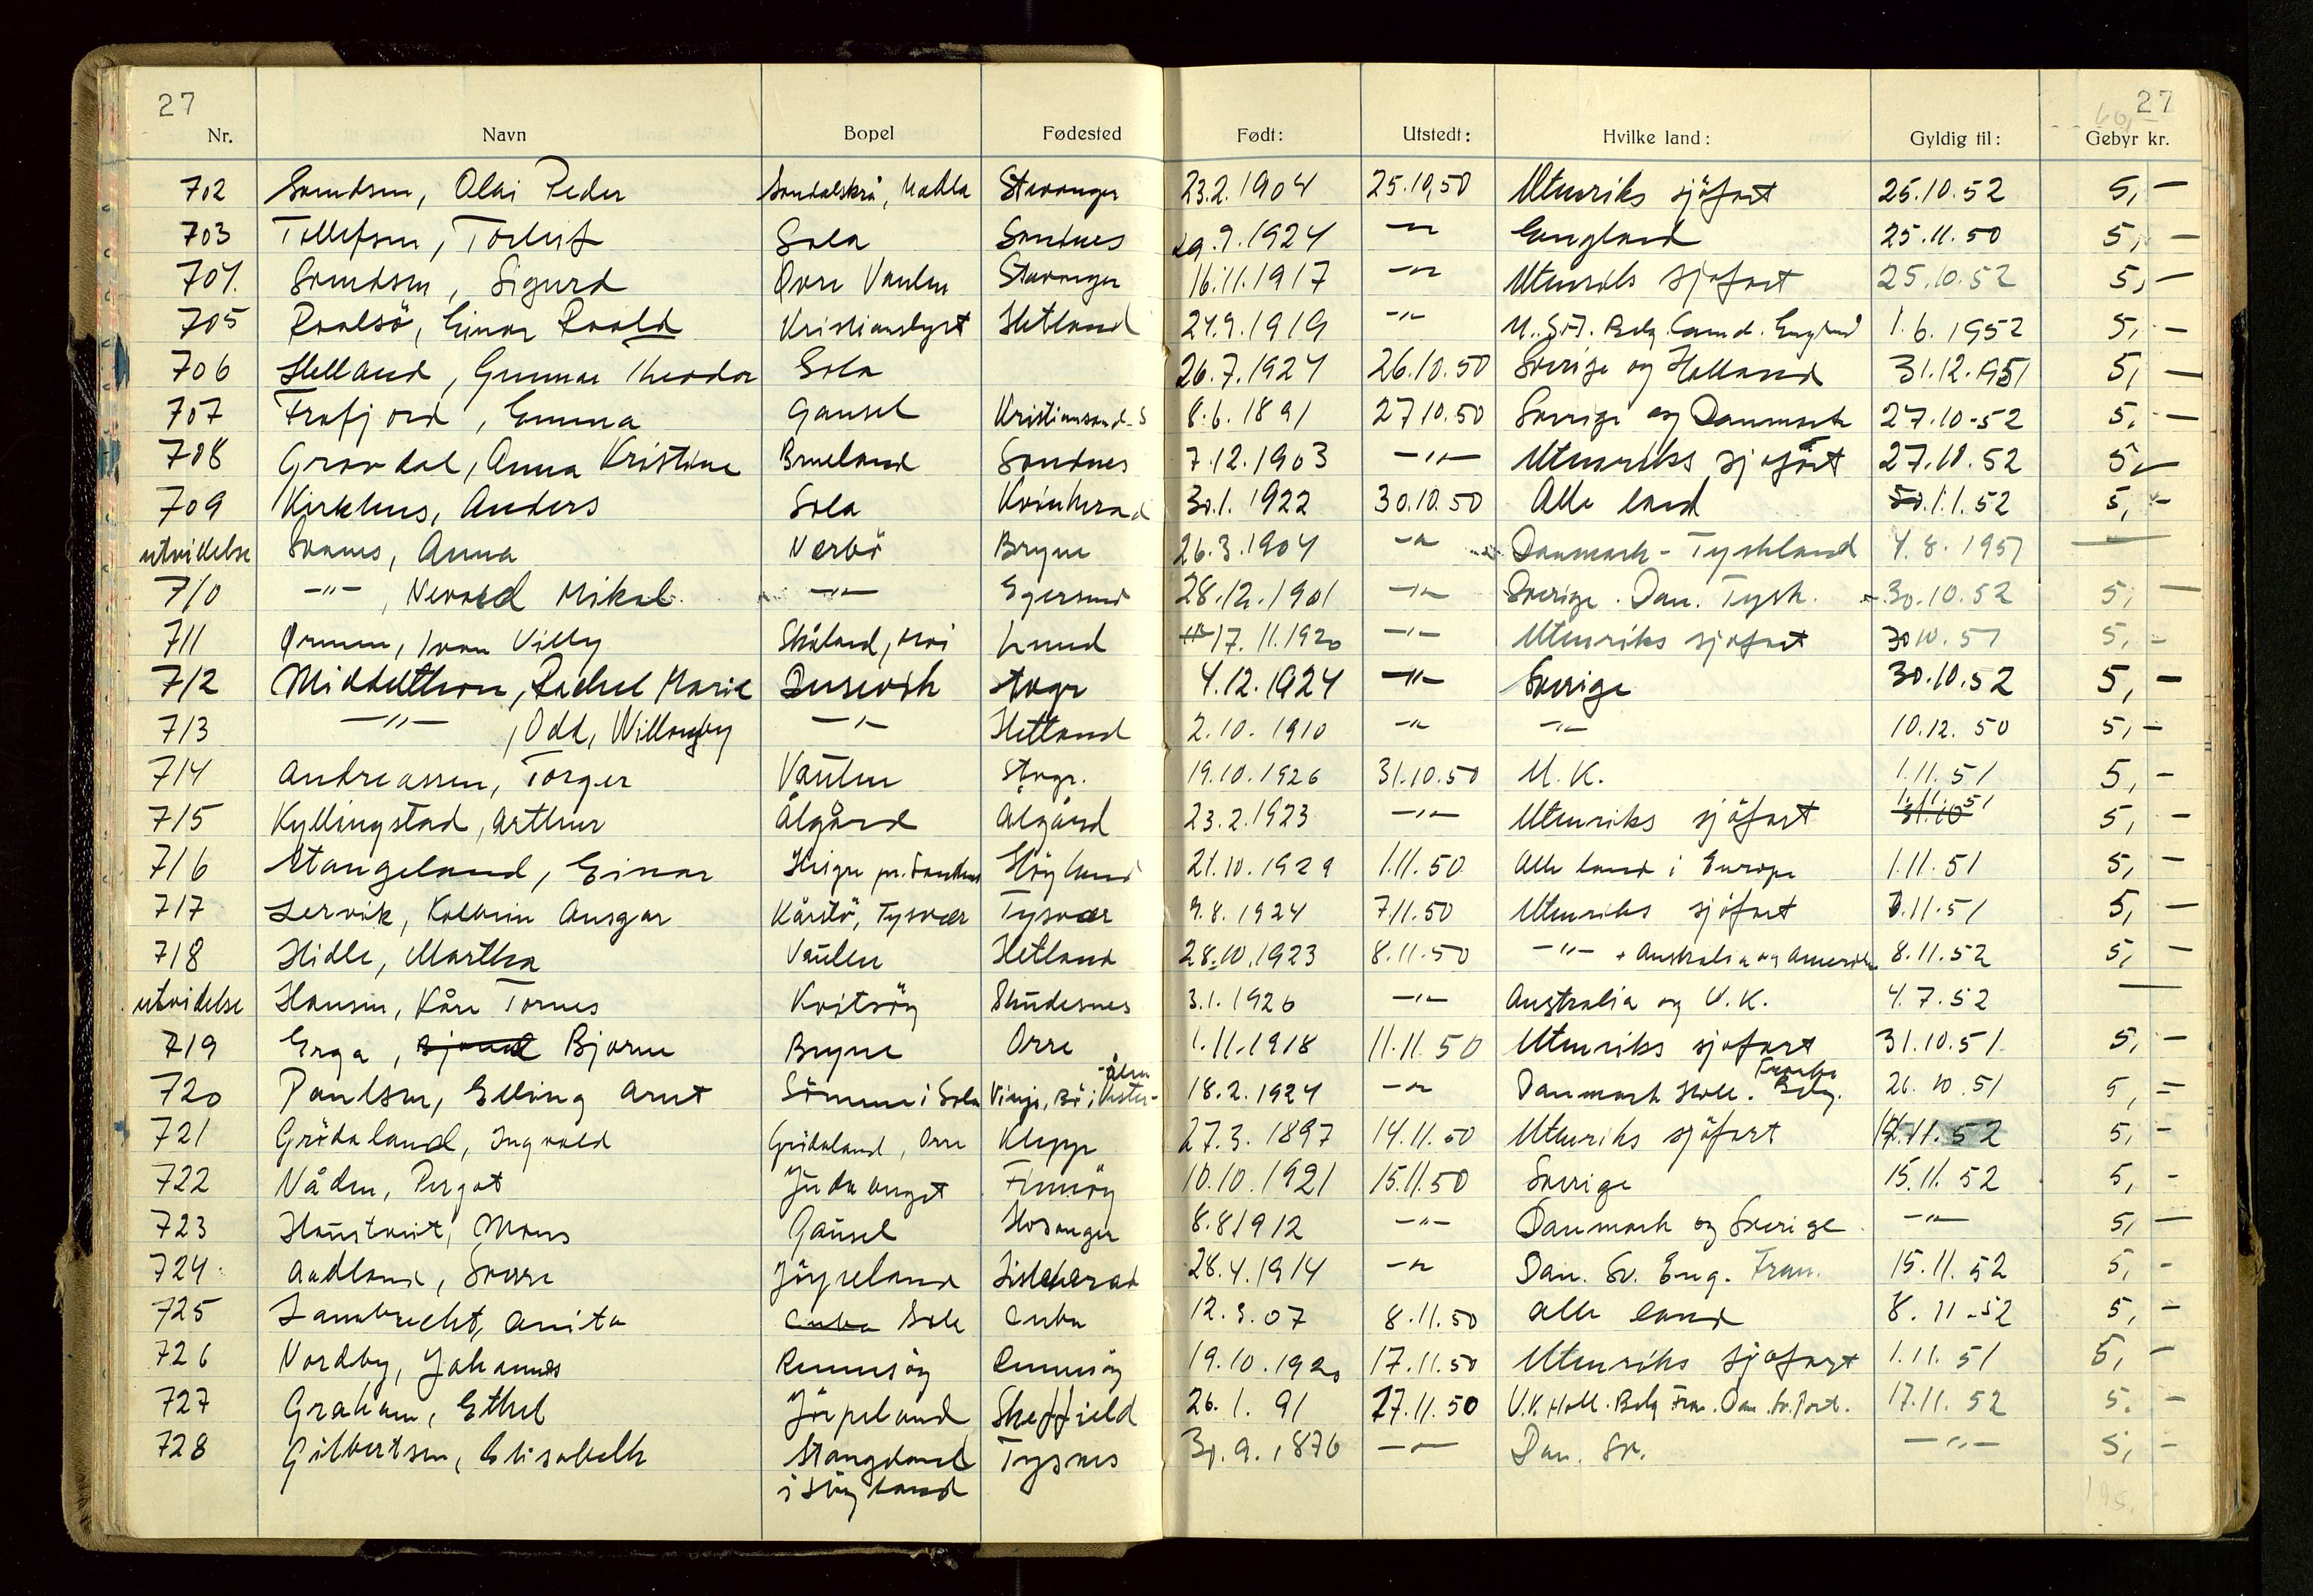 27 27
60,-
Nr. Navn Bopel Fødested Født: Utstedt: Hvilke land: Gyldig til: Gebyr kr.
702 Svendsen, Olai Peder Madla Stavanger 23.2.1904 25.10.50 Utenriks sjöfart 25.10.52 5,-
703 Tollefsen, Torleif Sola Sandnes 29.9.1924 -"- England 25.11.50 5,-
704. Svendsen, Sigurd Øvre Vaulen Stavanger 16.11.1917 -"- Utenriks sjøfart 25.10.52 5,-
705 Roalsö, Einar Roald Kristianslyst Hetland 24.9.1919 -"- U.S.A. Belg. Canad. England 1.6.1952 5,-
706 Helland, Gunnar Theodor Sola 26.7.1924 26.10.50 Sverige og Holland 31.12.1951 5,-
707 Frafjord, Emma Gausel Kristiansand S 8.6.1891 27.10.50 Sverige og Danmark 27.10-52 5,-
708 Gravdal, Anna Kristine Brueland Sandnes 7.12.1903 -"- Utenriks sjøfart 27.10.52 5,-
709 Kirkhus, Anders Sola Kvinherad 30.1.1922 30.10.50 Alle land 1.1.52 5,-
utvidelse Svanes, Anna Nærbö Bryne 26.3.1904 -"- Danmark - Tyskland 4.8.1951 —
710 -"-, Nevald Mikal -"- Egersund 28.12.1901 -"- Sverige. Dan. Tysk. 30.10.52 5,-
711 Ørnen, Ivan Villy Skåland, Moi Lund 17.11.1920 -"- Utenriks sjøfart 30.10.51 5,-
712 Middelthon, Rachel Marie Dusevik Stvgr 4.12.1924 -"- Sverige 30.10.52 5,-
713 -"-, Odd, Willougby -"- Hetland 2.10.1910 -"- -"- 10.12.50 5,-
714 Andreassen, Torger Vaulen Stvgr. 19.10.1926 31.10.50 U.K. 1.11.51 5,-
715 Kyllingstad, Arthur Ålgård Ålgård 23.2.1923 -"- Utenriks sjöfart 31.10 1.11.51 5,-
716 Stangeland, Einar Heigre pr. Sandnes Höyland 21.10.1929 1.11.50 Alle land i Europa 1.11.51 5,-
717 Lervik, Kolbein Ansgar Kårstö, Tysvær Tysvær 9.8.1924 7.11.50 Utenriks sjöfart 7.11.51 5,-
718 Hidle, Martha Vaulen Hetland 28.10.1923 8.11.50 -"- + Australia og Amerika 8.11.52 5,-
utvidelse Hansen, Kåre Tornes Kvitsöy Skudesnes 3.1.1926 -"- Australia og U.K. 4.7.52 —
719 Erga, Bjarne Bryne Orre 1.11.1918 11.11.50 Utenriks sjøfart 31.10.51 5,-
720 Paulsen, Elling Arnt Sömme i Sola Vinje, Bö i Vester-ålen 18.2.1924 -"- Danmark Holl. Belg. Frankr. 26.10.51 5,-
721 Grödaland, Ingvald Grödaland, Orre Klepp 27.3.1897 14.11.50 Utenriks sjöfart 14.11.52 5,-
722 Våden, Pergot Finnöy 10.10.1921 15.11.50 Sverige 15.11.52 5,-
723 Haustveit, Mons Gausel Hosanger 8.8.1912 -"- Danmark og Sverige -"- 5,-
724. Aadland, Sverre Jörpeland 28.4.1914 -"- Dan. Sv. Eng. Fran. 15.11.52 5,-
725 Lambrecht, Anita Cuba Sola Cuba 12.3.07 8.11.50 alle land 8.11-52 5,-
726 Nordby, Johannes Rennesöy Rennesöy 19.10.1920 17.11.50 Utenriks sjøfart 1.11.51 5,-
727 Graham, Ethel Jörpeland Sheffield 26.1.91 17.11.50 U.K. Holl. Belg. Fra. Dan. Sv. Port. 17.11.52 5.-
728 Gilbertsen, Elisabeth Stangeland i Höyland Tysnes 30.9.1876 -"- Dan. Sv. -"- 5,-
195,